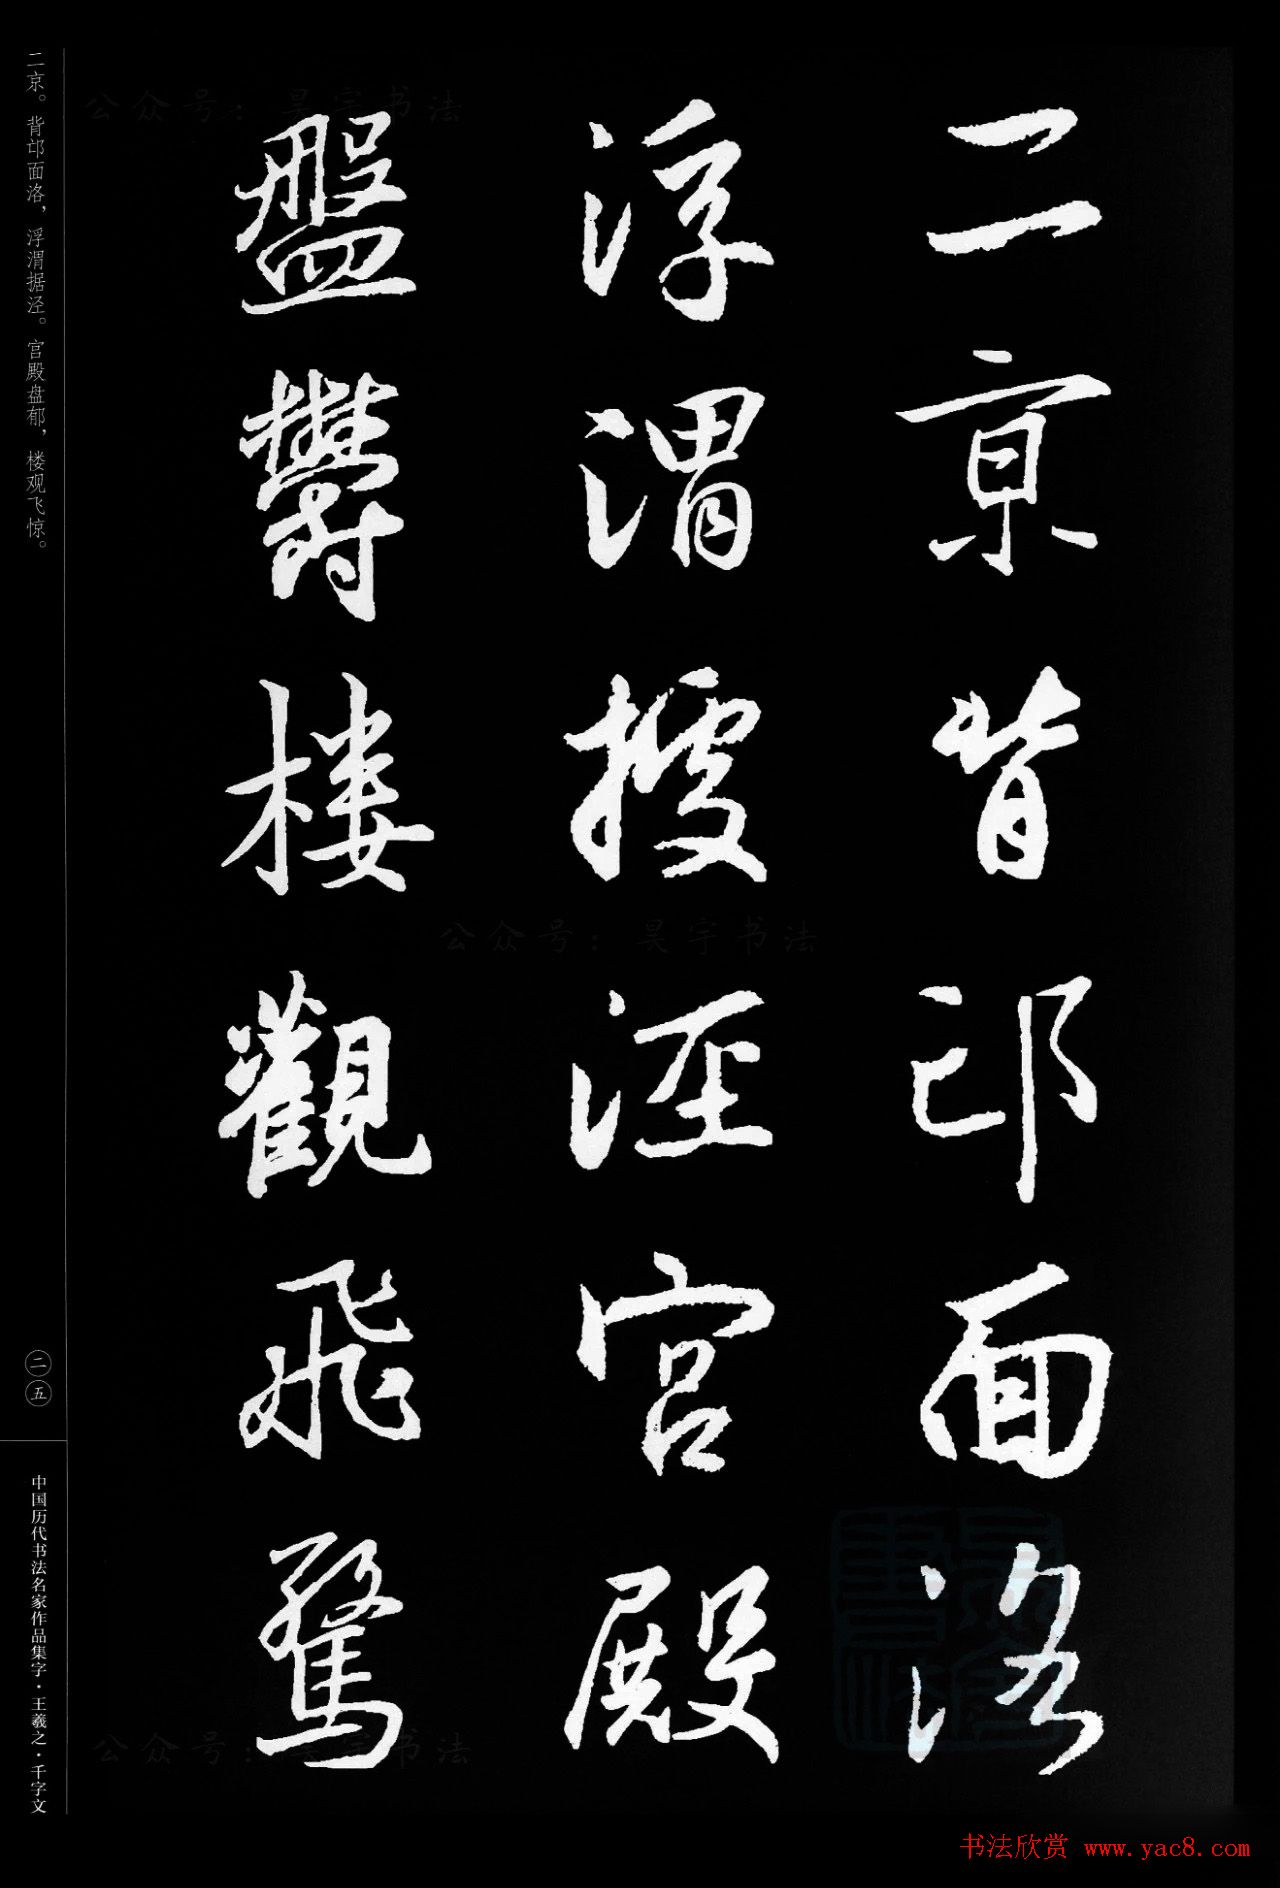 二京背邙面洛
浮渭據涇宮殿
盤鬱樓觀飛驚
二京。背邙面洛，浮渭据泾。宫殿盘郁，楼观飞惊。
二五
中国历代书法名家作品集字·王羲之·千字文
公众号：昊宇书法
公众号：昊宇书法
公众号：昊宇书法
书法欣赏 www.yac8.com